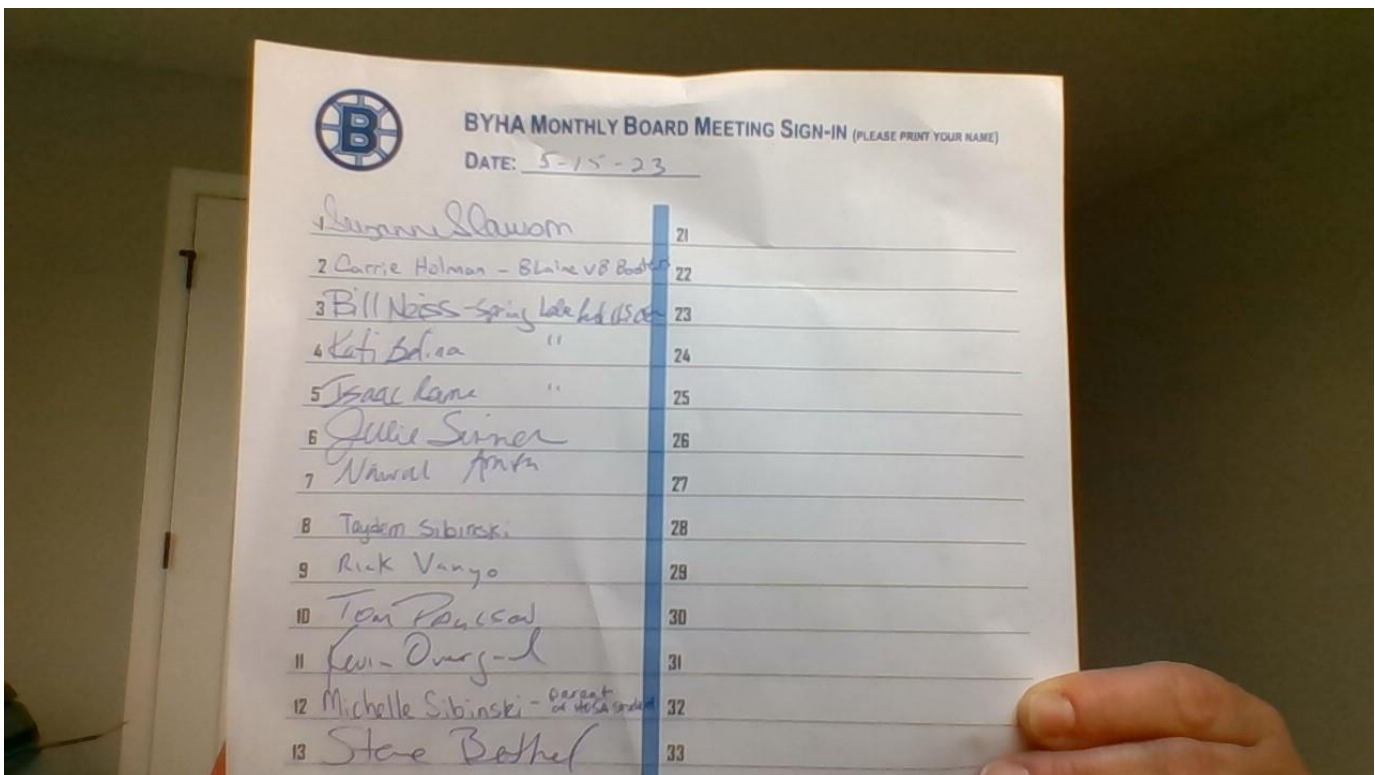 B
BYHA MONTHLY BOARD MEETING SIGN-IN (PLEASE PRINT YOUR NAME)
DATE: 5-15-23
1 Suzanne Slawson
2 Carrie Holman - Blaine VB Boosters
3 Bill Neiss - Spring Lake Park
4 Kati
5 Isaac "
6 Julie Sinner
7 Nawal
8 Taydem Sibinski
9 Rick Vanyo
10 Tom Paulson
11 Kevin Overgaard
12 Michelle Sibinski - parent of HOSA student
13 Steve Bethel
21
22
23
24
25
26
27
28
29
30
31
32
33